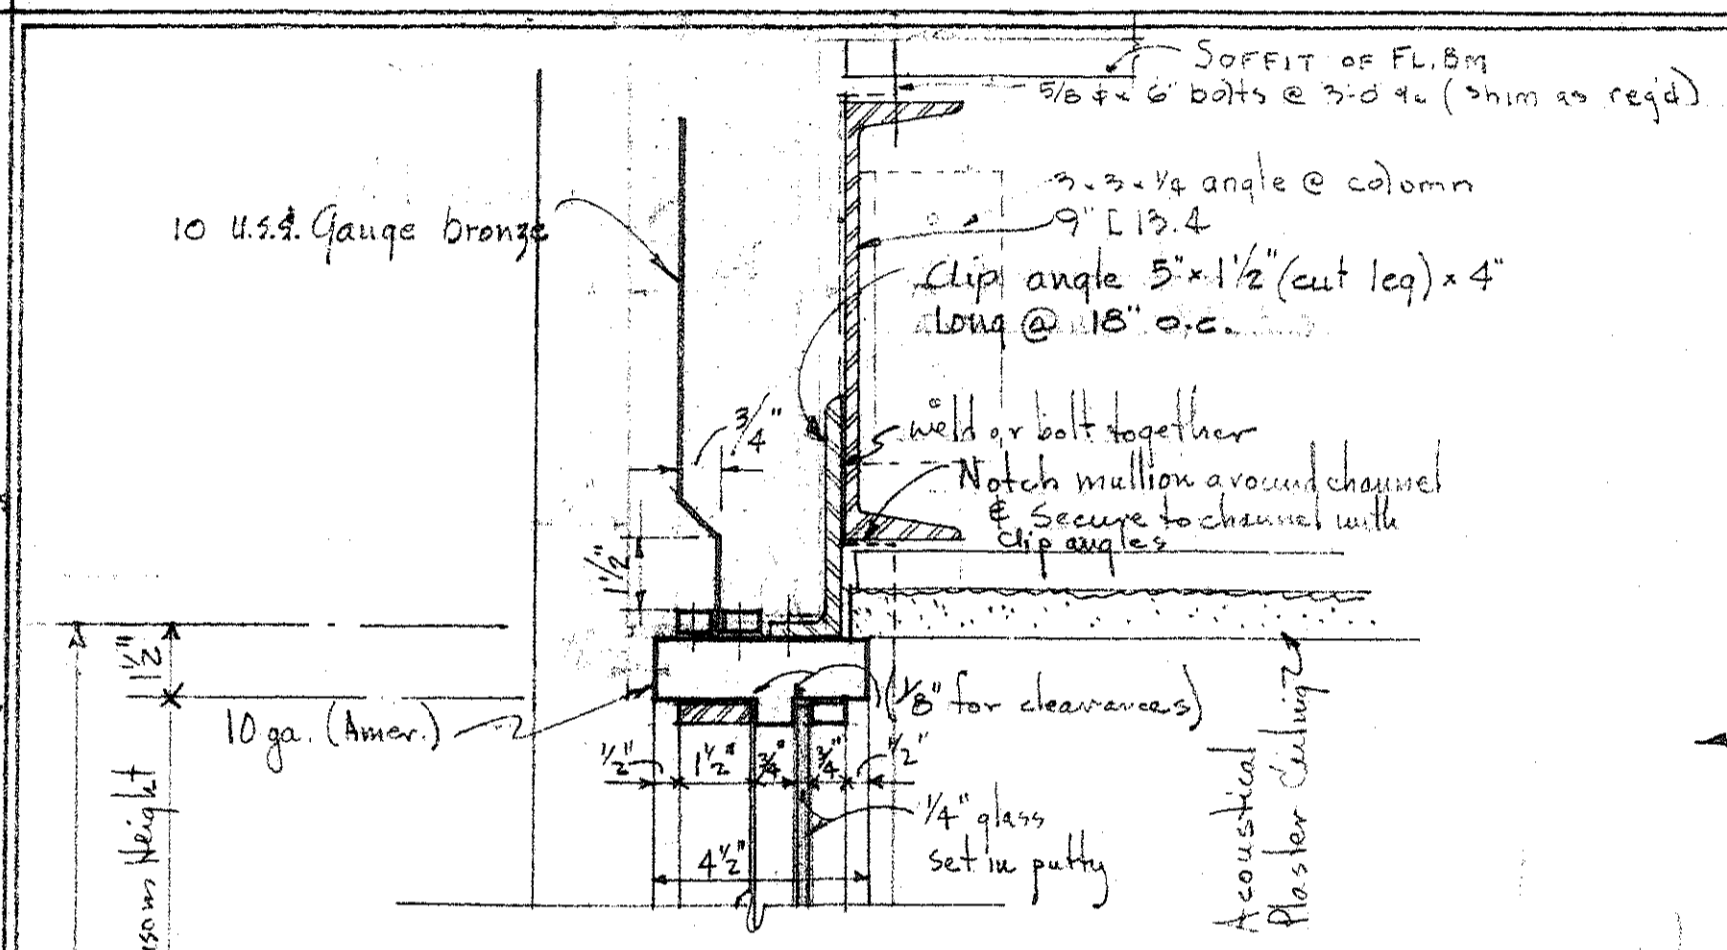 SOFFIT OF FL. BM
5/8 ϕ x 6" bolts @ 3-0 o/c (shim as req'd)
3 x 3 x 1/4 angle @ colomn
9" [ 13.4
10 U.S.S. Gauge bronze
Clip angle 5" x 1 1/2" (cut leg) x 4"
long @ 18" o.c.
3/4"
weld or bolt together
Notch mullion around channel
& Secure to channel with
Clip angles
1 1/2"
1 1/2"
(1/8" for clearances)
10 ga. (Amer.)
1/2"
1 1/2"
3/4"
3/4"
1/2"
1/4" glass
set in putty
4 1/2"
Height
Acoustical
Plaster Ceiling